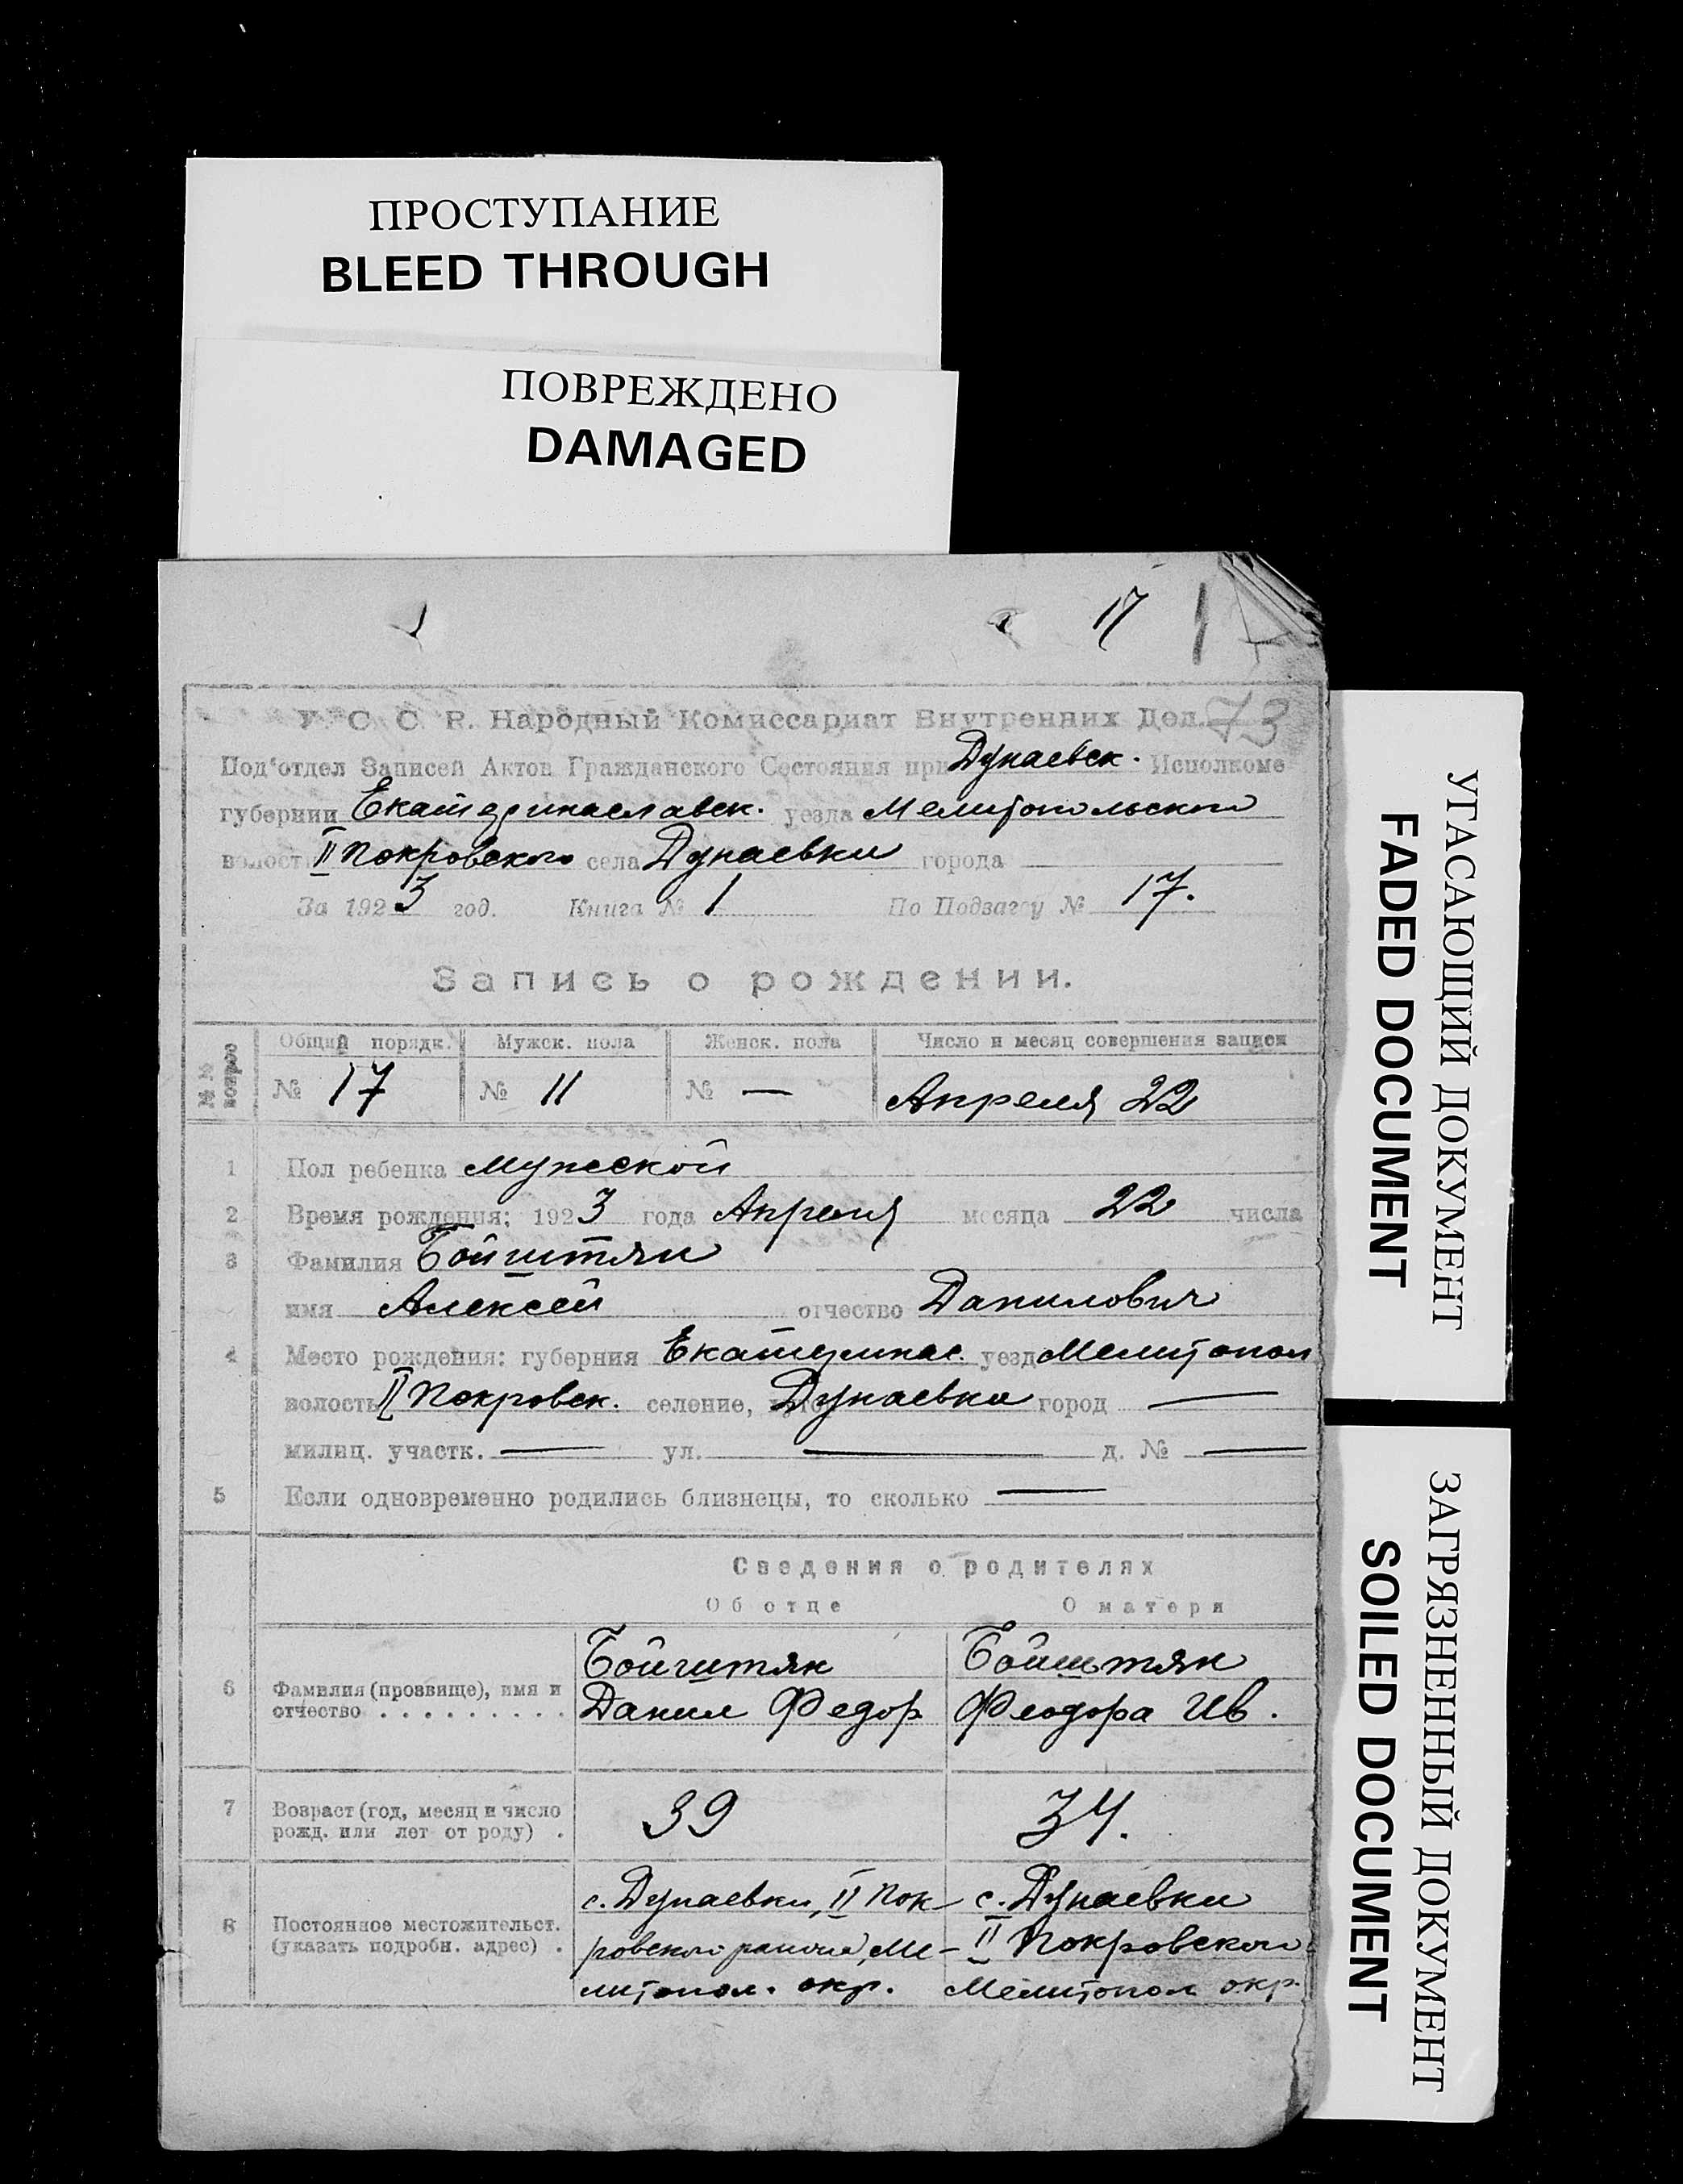 ПРОСТУПАНИЕ
BLEED THROUGH
ПОВРЕЖДЕНО
DAMAGED
17 17
73
У. С. С. Р. Народный Комиссариат Внутренних Дел.
Под'отдел Записей Актов Гражданского Состояния при Дунаевск. Исполкоме
губернии Екатеринославск. уезда Мелитопольского
волости II Покровского села Дунаевки города —
За 1923 год. Книга № 1 По Подзагсу № 17.
Запись о рождении.
№№ вопрос Общий порядк. Мужск. пола Женск. пола Число и месяц совершения записи
№ 17 № 11 № — Апреля 22
1 Пол ребенка мужской
2 Время рождения: 1923 года Апреля месяца 22 числа
3 Фамилия Бойштян
имя Алексей отчество Данилович
4 Место рождения: губерния уезд Мелитопол
волость II Покровск. селение, Дунаевка город —
милиц. участк. — ул. — д. № —
5 Если одновременно родились близнецы, то сколько —
Сведения о родителях
Об отце О матери
6 Фамилия (прозвище), имя и отчество . . . . . . . . .
Бойштян Бойштян
Данил Федор Феодора Ив.
7 Возраст (год, месяц и число рожд. или лет от роду) .
39 34.
8 Постоянное местожительст. (указать подробн. адрес) .
с. Дунаевки, II Пок- с. Дунаевки
ровского района, Ме- II Покровского
литопол. окр. Мелитопол окр.
УГАСАЮЩИЙ ДОКУМЕНТ
FADED DOCUMENT
ЗАГРЯЗНЕННЫЙ ДОКУМЕНТ
SOILED DOCUMENT